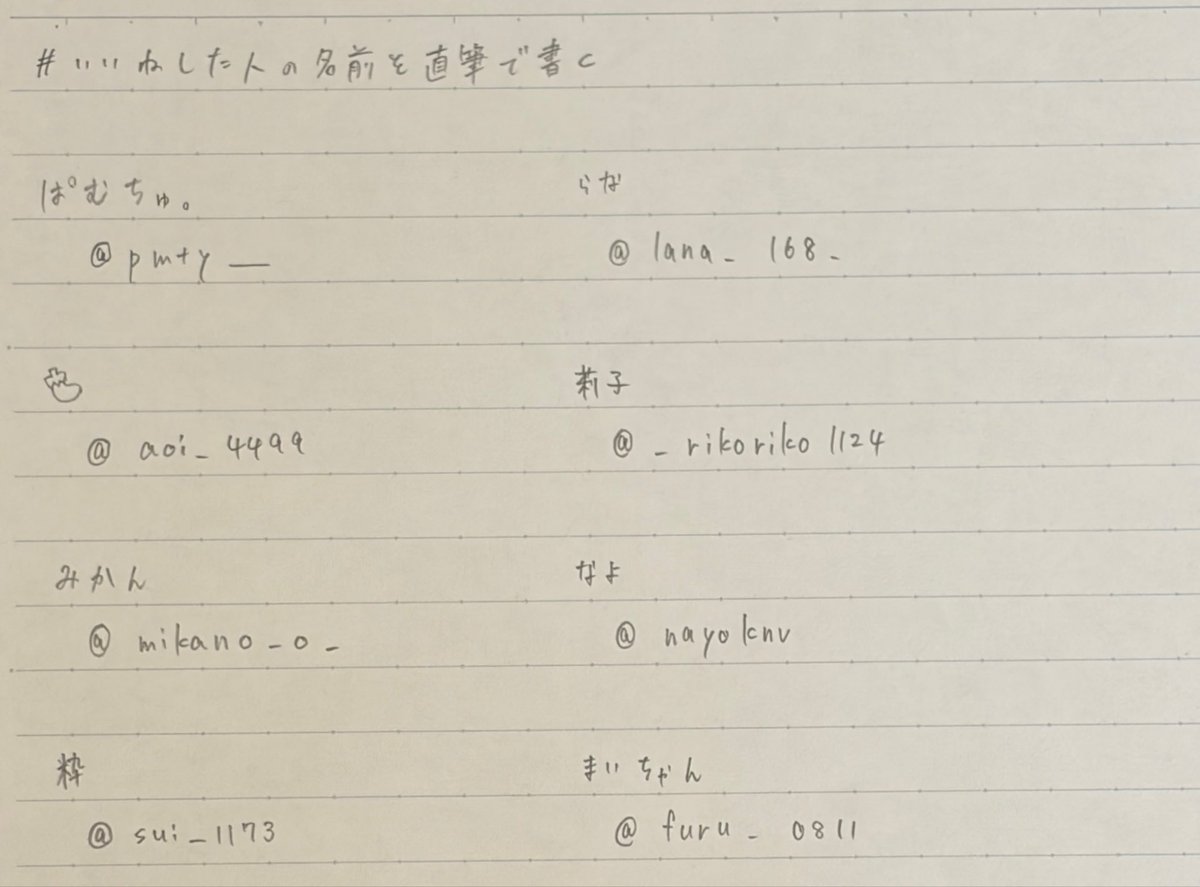 #いいねした人の名前を直筆で書く
ぱむちゅ。
@pmty__
らな
@lana_168_
@aoi_4499
莉子
@_rikoriko1124
みかん
@mikano_o_
なよ
@nayoknv
粋
@sui_1173
まいちゃん
@furu_0811